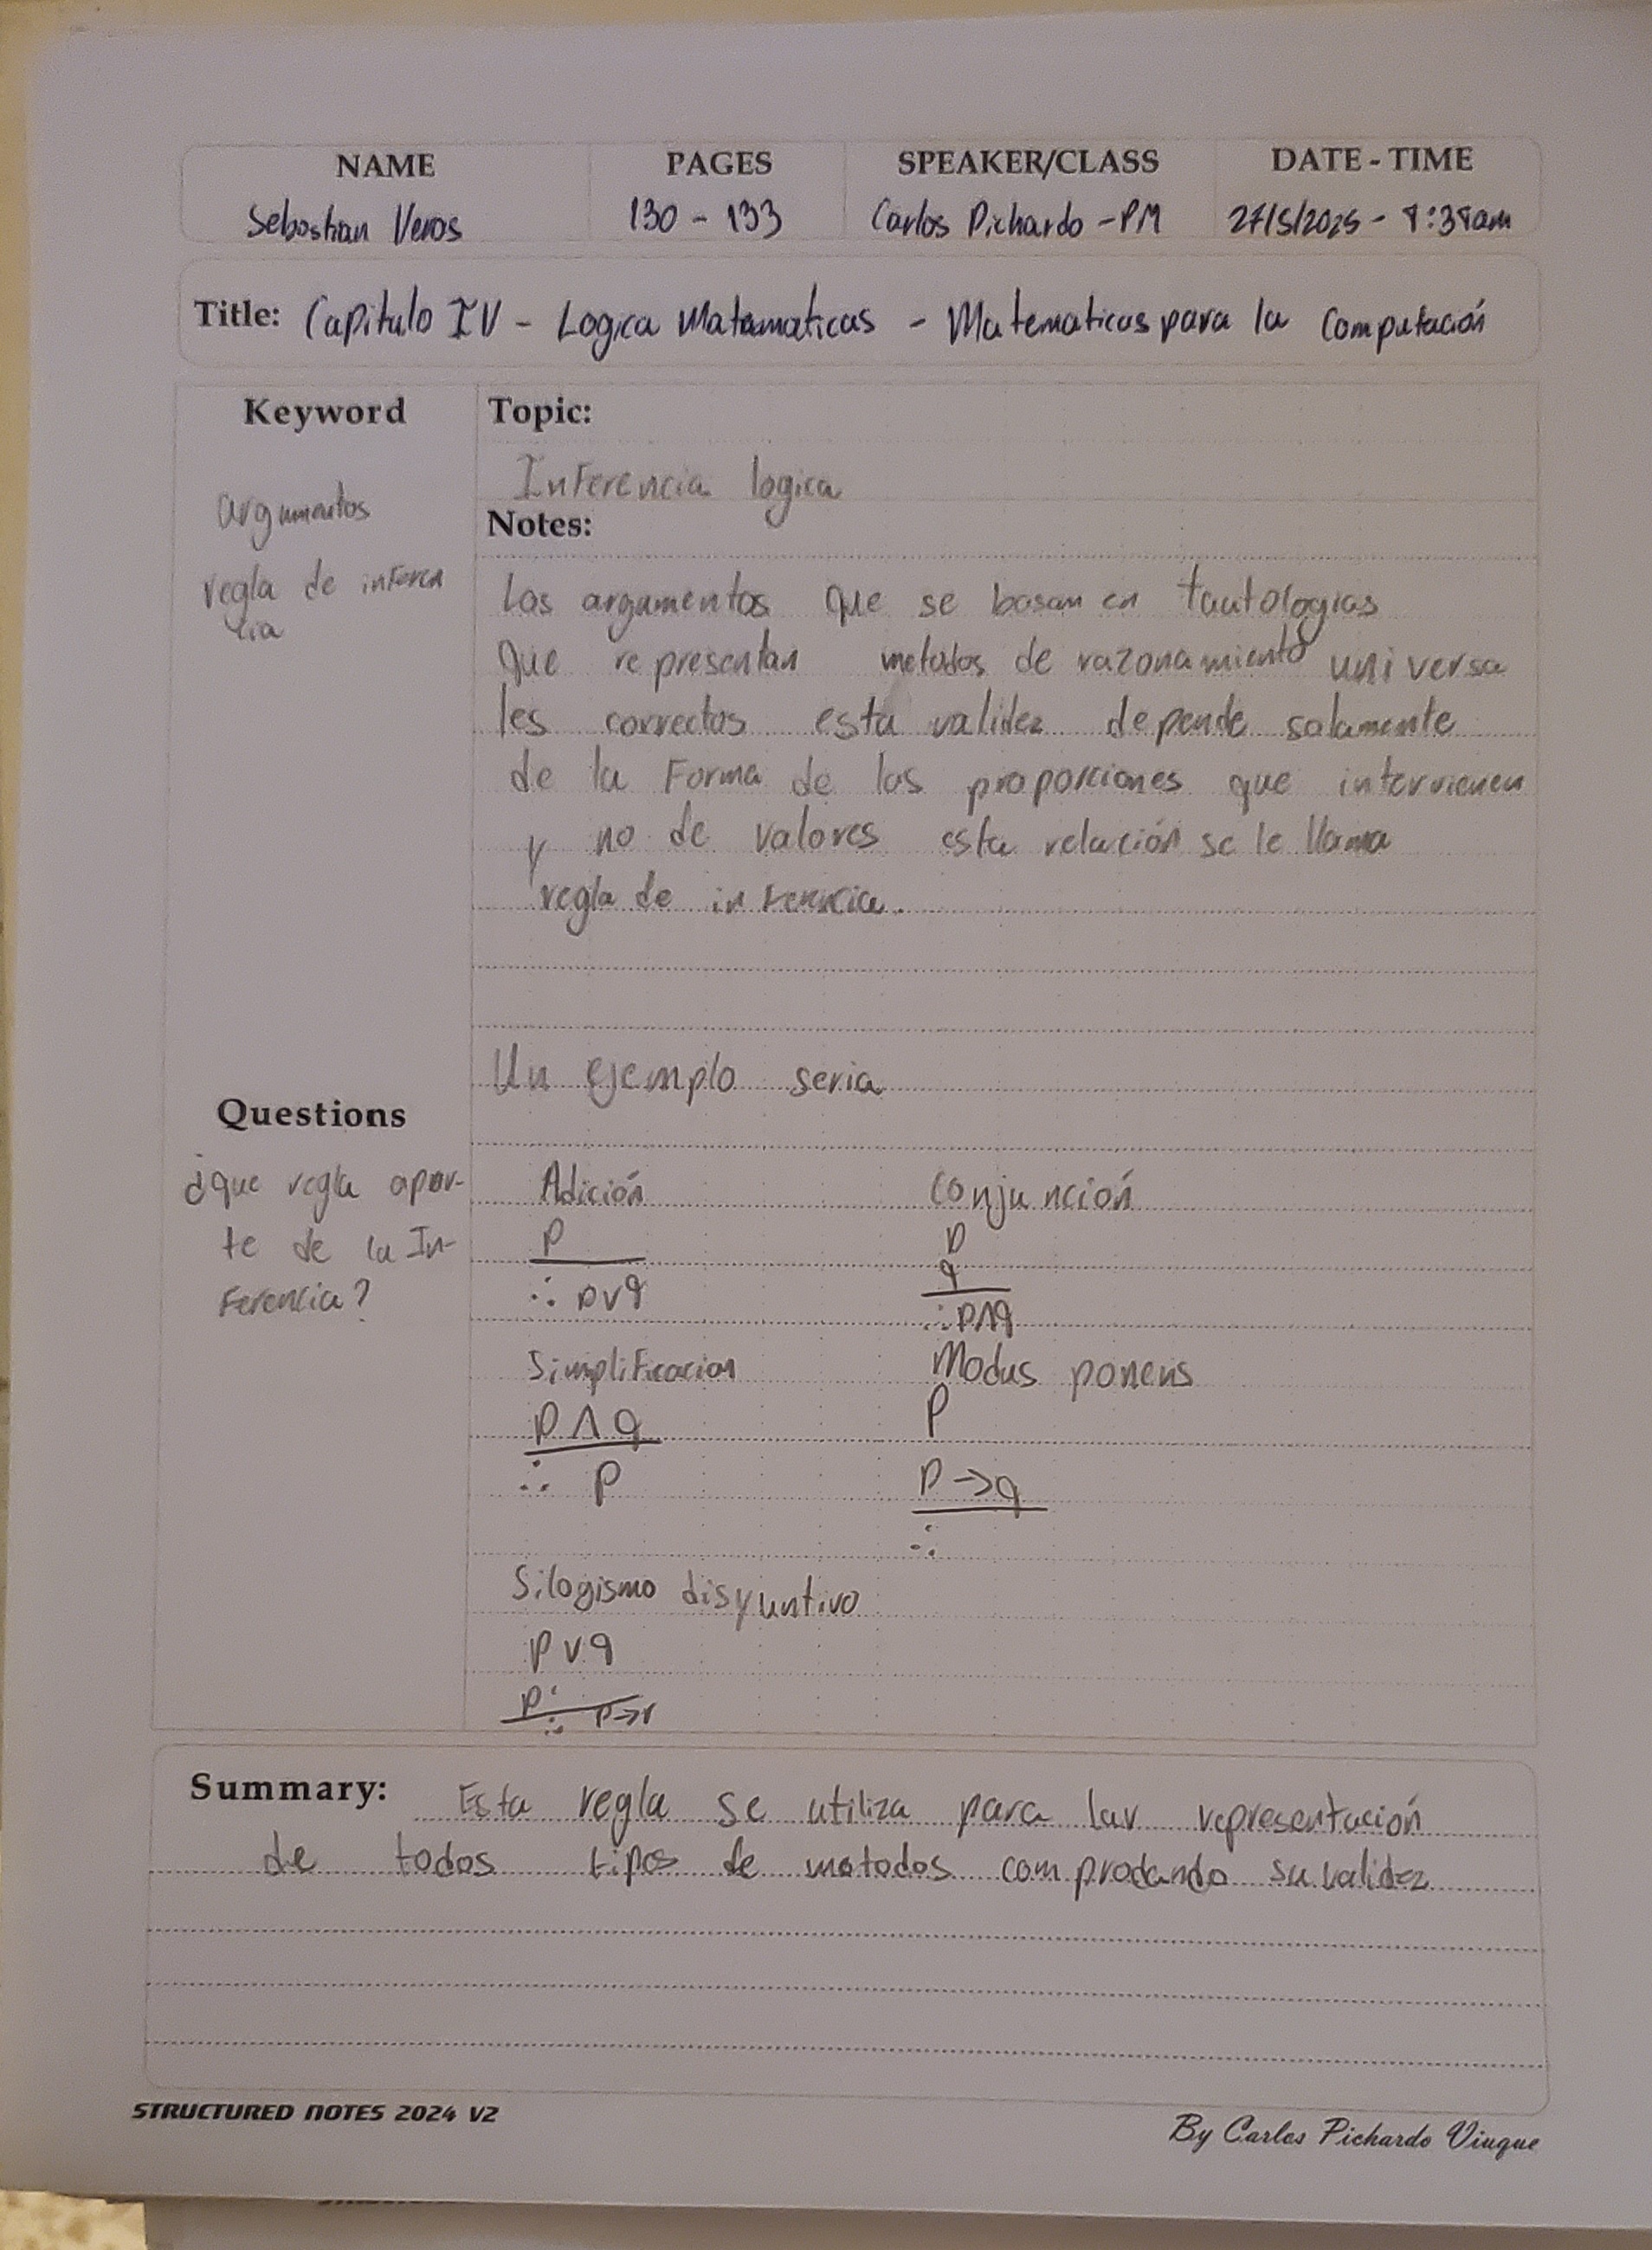 NAME PAGES SPEAKER/CLASS DATE - TIME
Sebastian Veras 130 - 133 Carlos Pichardo - PM 27/5/2025 - :38am
Title: Capitulo IV - Logica Matamaticas - Matematicas para la Computación
Keyword
argumentos
regla de inferen
cia
Topic:
Inferencia logica
Notes:
Los argumentos que se basan en tautologias
que representan metodos de razonamiento universa
les correctos esta validez depende solamente
de la Forma de las proporciones que intervienen
y no de valores esta relación se le llama
regla de inferencia.
Un ejemplo seria
Questions
¿que regla apar-
te de la In-
ferencia?
Adición Conjunción
p p
q
∴ p∨q ∴ p∧q
Simplificacion Modus ponens
p∧q p
∴ p p→q
∴
Silogismo disyuntivo
p∨q
p'
∴ p→r
Summary: Esta regla se utiliza para lar representación
de todos tipos de metodos comprodando su validez
STRUCTURED NOTES 2024 V2
By Carlos Pichardo Viuque